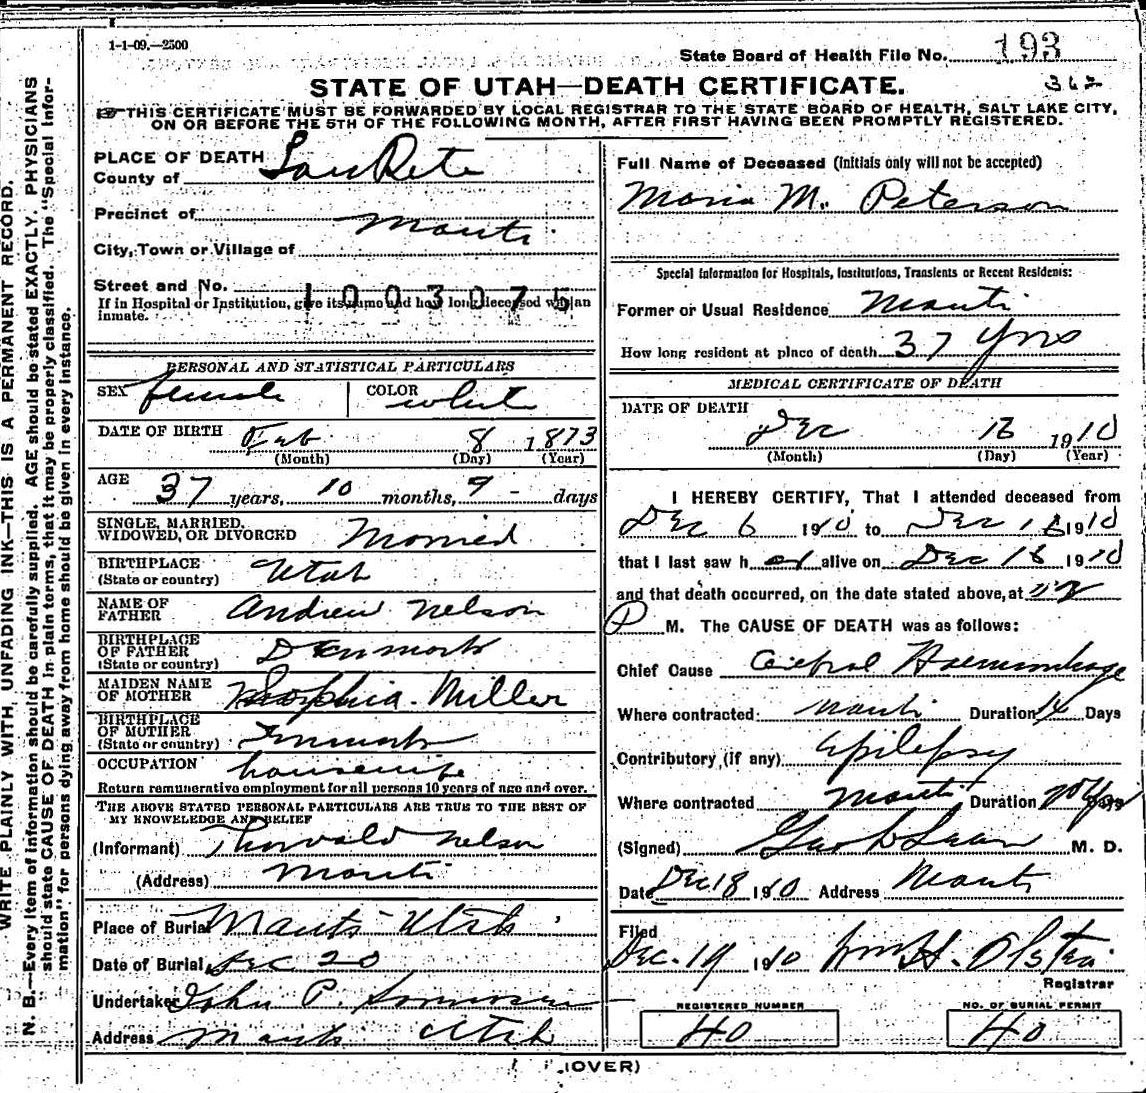 1-1-09.—2500
State Board of Health File No. 193
STATE OF UTAH—DEATH CERTIFICATE.
362
THIS CERTIFICATE MUST BE FORWARDED BY LOCAL REGISTRAR TO THE STATE BOARD OF HEALTH, SALT LAKE CITY,
ON OR BEFORE THE 5TH OF THE FOLLOWING MONTH, AFTER FIRST HAVING BEEN PROMPTLY REGISTERED.
WRITE PLAINLY WITH UNFADING INK—THIS IS A PERMANENT RECORD.
N. B.—Every item of information should be carefully supplied. AGE should be stated EXACTLY. PHYSICIANS
should state CAUSE OF DEATH in plain terms, that it may be properly classified. The "Special Infor-
mation" for persons dying away from home should be given in every instance.
PLACE OF DEATH
County of SanPete
Precinct of Manti
City, Town or Village of
Street and No.
1003075
If in Hospital or Institution, give its name and how long deceased was an
inmate.
PERSONAL AND STATISTICAL PARTICULARS
SEX female COLOR white
DATE OF BIRTH Feb 8 1873
(Month) (Day) (Year)
AGE 37 years, 10 months, 9 - days
SINGLE, MARRIED,
WIDOWED, OR DIVORCED Married
BIRTHPLACE
(State or country) Utah
NAME OF
FATHER Andrew Nelson
BIRTHPLACE
OF FATHER
(State or country) Denmark
MAIDEN NAME
OF MOTHER Sophia Miller
BIRTHPLACE
OF MOTHER
(State or country) Denmark
OCCUPATION housewife
Return remunerative employment for all persons 10 years of age and over.
THE ABOVE STATED PERSONAL PARTICULARS ARE TRUE TO THE BEST OF
MY KNOWLEDGE AND BELIEF
(Informant) Thorvald Nelson
(Address) Manti
Place of Burial Manti Utah
Date of Burial Dec 20
Undertaker John P.
Address Manti Utah
Full Name of Deceased (Initials only will not be accepted)
Maria M. Peterson
Special Information for Hospitals, Institutions, Transients or Recent Residents:
Former or Usual Residence Manti
How long resident at place of death 37 Yrs
MEDICAL CERTIFICATE OF DEATH
DATE OF DEATH
Dec 18 1910
(Month) (Day) (Year)
I HEREBY CERTIFY, That I attended deceased from
Dec 6 1910 to Dec 18 1910
that I last saw her alive on Dec 18 1910
and that death occurred, on the date stated above, at
P M. The CAUSE OF DEATH was as follows:
Chief Cause Cerebral Haemorrhage
Where contracted Manti Duration 14 Days
Contributory (if any) Epilepsy
Where contracted Manti Duration 20 Yrs Days
(Signed) Geo M. D.
Date Dec 18 1910 Address Manti
Filed
Dec. 19 1910 Wm H. Olsten
Registrar
REGISTERED NUMBER
40
NO. OF BURIAL PERMIT
40
(OVER)